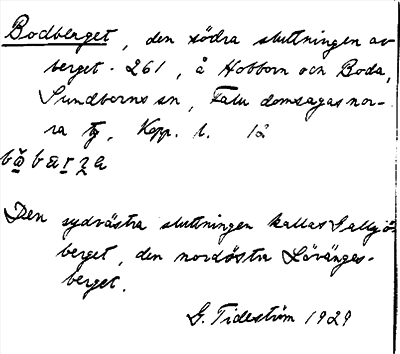 Bodberget, den södra sluttningen av
berget. 261, å Hobborn och Boda,
Sundborns sn, Falu domsagas nor-
ra tg, Kopp. l. 12

Den sydvästra sluttningen kallas
berget, den nordöstra Lövängs-
berget.
G. Tideström 1929